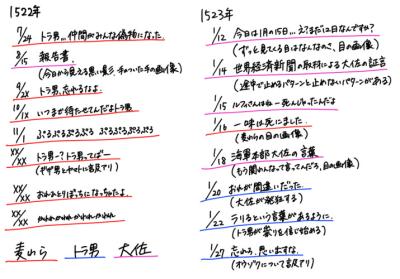 1522年
7/24 トラ男...仲間がみんな偽物になった。
8/15 報告書。
(今日から見える黒い影、チャついた手の画像)
9/2X トラ男、忘れるなよ。
10/1X いつまで待たせてんだよトラ男
11/1 ぷるぷるぷるぷる ぷるぷるぷるぷる
XX/XX トラ男ー?トラ男ってばー
(ギザ男とヤマトに言及アリ)
XX/XX おれひとりぼっちになっちゃたよ。
XX/XX かわれかわれかわれかわれ
麦わら トラ男 大佐
1523年
1/12 今日は1月の15日...え?まだ12日なんですね?
(ずっと見てくる目はなんなのさ、目の画像)
1/14 世界経済新聞の取材による大佐の証言
(途中で止めるパターンと止めないパターンがある)
1/15 ルフィさんはねー死んじゃったんだよ
1/16 一味は死にました。
(麦わらの目の画像)
1/18 海軍本部大佐の言葉
(もう関わんなって言ってんだろ、目の画像)
1/20 おれが間違いだった。
(大佐が発狂する)
1/22 ラリるという言葉があるように。
(トラ男が祭りを信じ始める)
1/27 忘れろ、思い出すな。
(オウソックについて言及アリ)